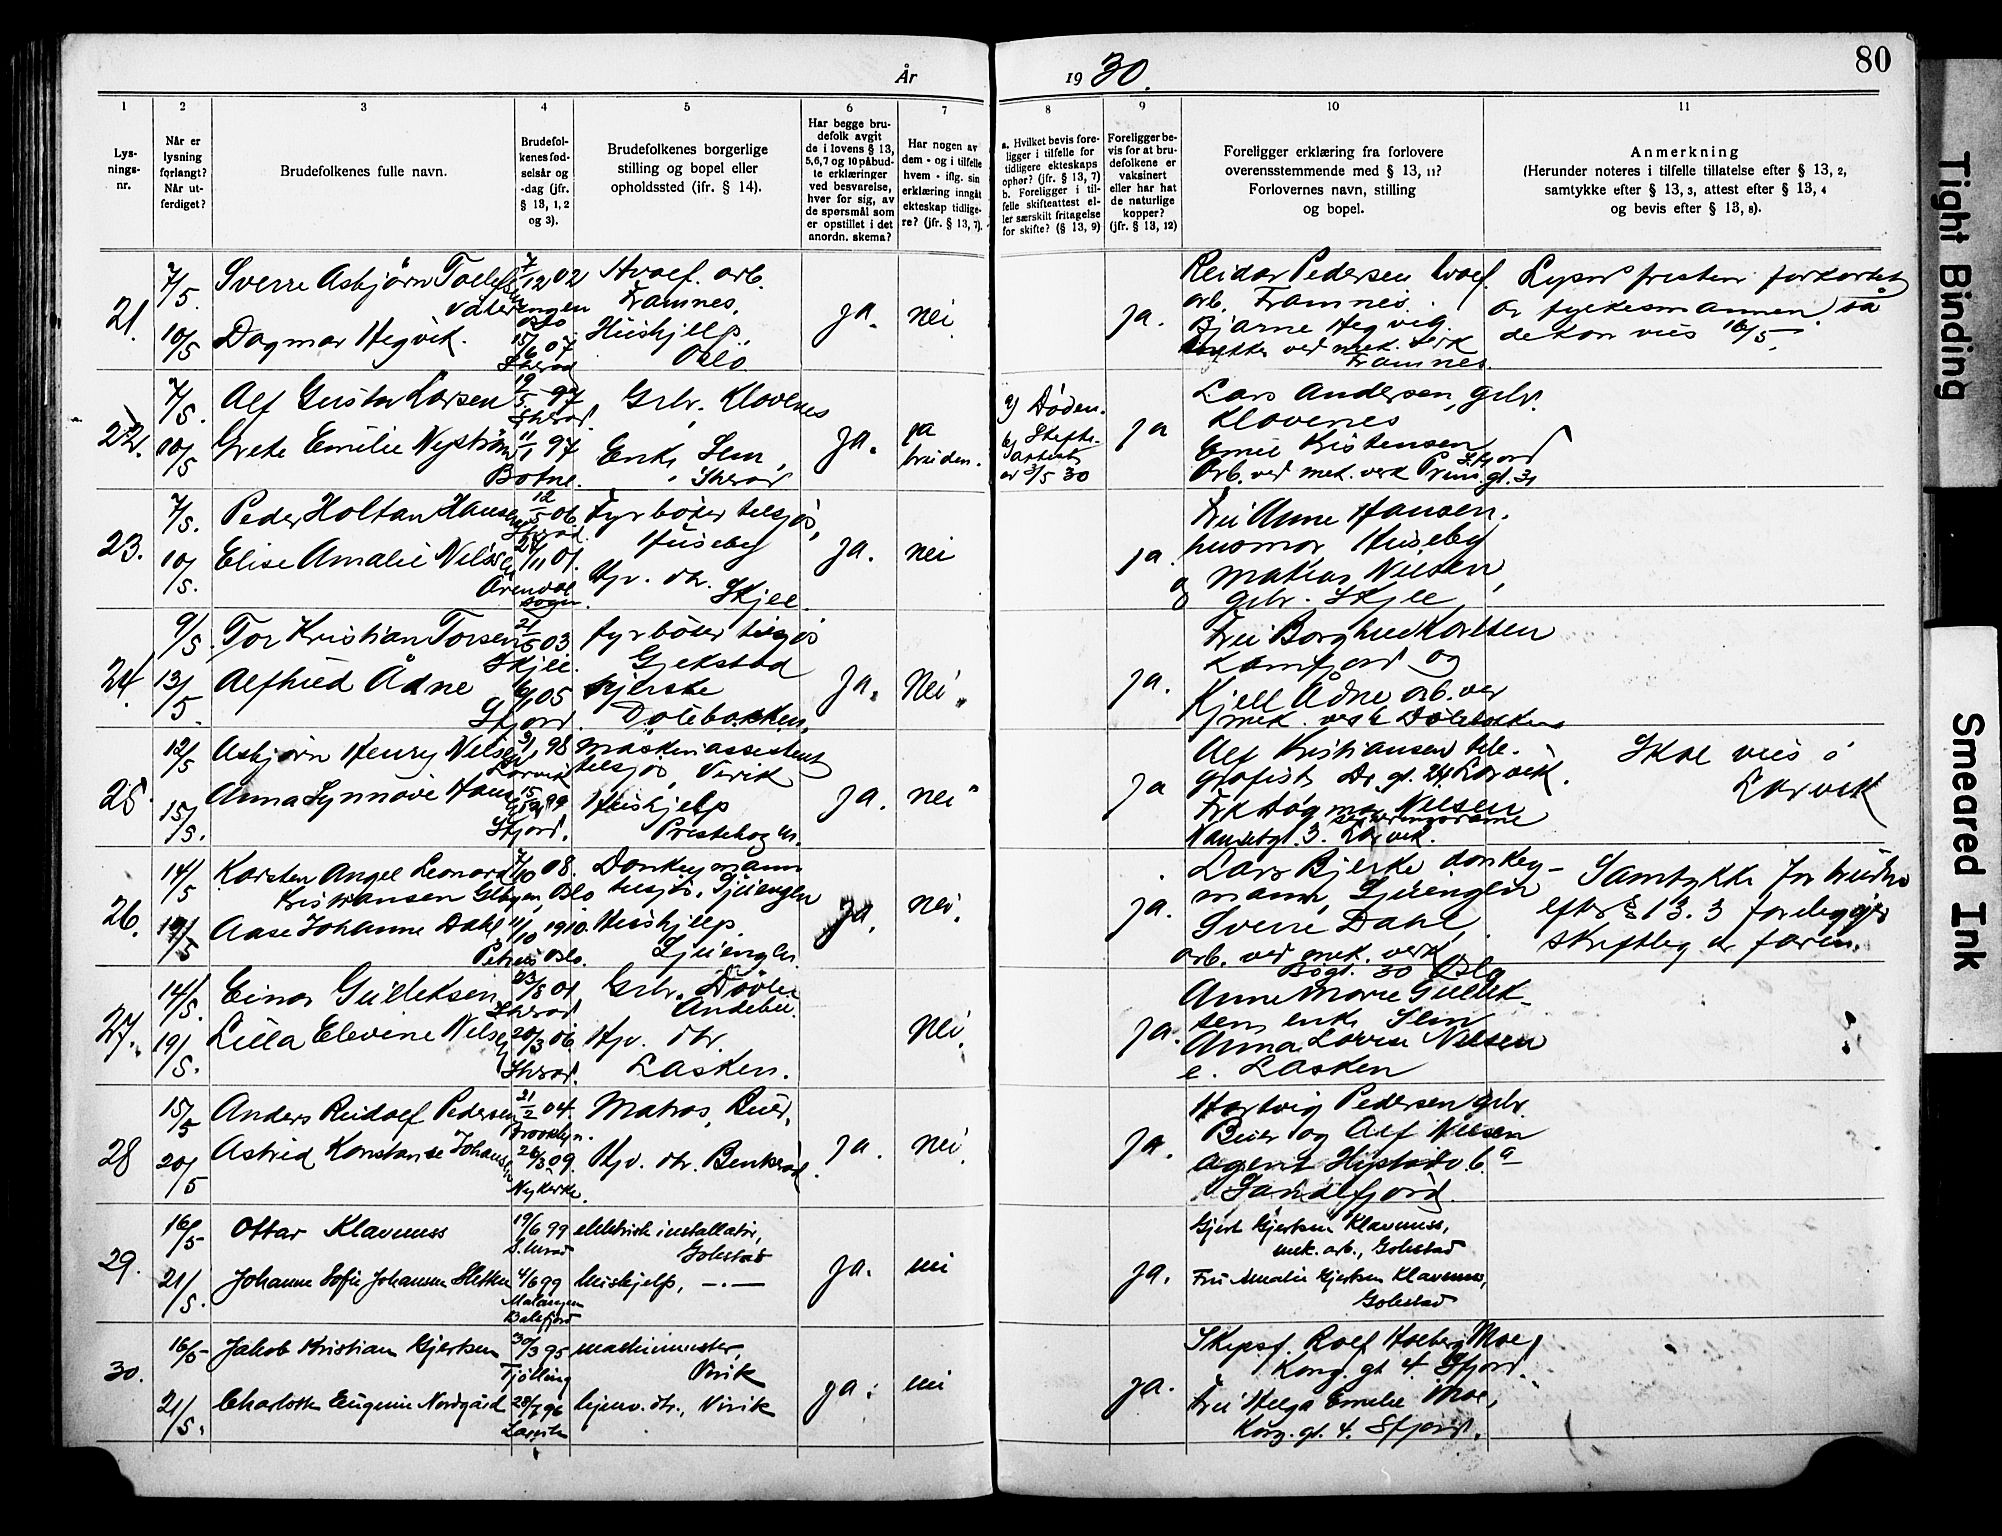 80
År 1930.
1 2 3 4 5 6 7 8 9 10 11
Lys-
nings-
nr.
Når er
lysning
forlangt?
Når ut-
ferdiget?
Brudefolkenes fulle navn.
Brudefol-
kenes fød-
selsår og
-dag (jfr.
§ 13, 1, 2
og 3).
Brudefolkenes borgerlige
stilling og bopel eller
opholdssted (jfr. § 14).
Har begge bru-
defolk avgit
de i lovens § 13,
5,6,7 og 10 påbud-
te erklæringer
ved besvarelse,
hver for sig, av
de spørsmål som
er opstillet i det
anordn. skema?
Har nogen av
dem - og i tilfelle
hvem - iflg. sin
erklæring inngåt
ekteskap tidlige-
re? (jfr. § 13, 7).
a. Hvilket bevis fore-
ligger i tilfelle for
tidligere ekteskaps
ophør? (jfr. § 13, 7)
b. Foreligger i til-
felle skifteattest el-
ler særskilt fritagelse
for skifte? (§ 13, 9)
Foreligger be-
vis for at bru-
defolkene er
vaksinert
eller har hat
de naturlige
kopper?
(jfr. § 13, 12)
Foreligger erklæring fra forlovere
overensstemmende med § 13, 11?
Forlovernes navn, stilling
og bopel.
Anmerkning
(Herunder noteres i tilfelle tillatelse efter § 13, 2,
samtykke efter § 13, 3, attest efter § 13, 4
og bevis efter § 13, 8).
21.
7/5.
10/5
Sverre Asbjørn Tollefsen
7/12 02
Vålerengen
Oslo
Dagmar Hegvik.
15/6 07
Sherad
Hvalf. arb.
Framnes.
Hushjelp.
Oslo
ja.
nei
ja.
Reidar Pedersen hvalf.
arb. Framnes.
Bjarne Hegvig.
ved mek. verk
Framnes.
Lysn. fristen forkortet
av fylkesmannen så
de kan vies 16/5.
22.
7/5.
10/5
Alf Gustav Larsen
19/5 97
Sherad.
Grete Emilie Nyström
11/1 97
Botne.
Grbr. Klavenes
Enke, Sem,
Sherad
ja.
ja
bruden.
a) Døden.
b) Skifte-
attest
av 3/5 30
ja
Lars Andersen, grbr.
Klavenes
Emil Kristensen
Sfjord
Arb. ved mek. verk Prins. gt. 31
23.
7/5.
10/5.
Peder Holtan Hansen
12/5 06
Sherad.
Elise Amalie Nilsen
24/11 01.
Arendal
sogn.
Fyrbøter tilsjøs,
Huseby
Hjv. dtr.
Skjee.
ja.
nei
ja.
Fru Anne Hansen.
husmor Huseby
og Matias Nilsen,
grbr. Skjee
24.
9/5.
13/5.
Tor Kristian Torsen
21/5 03
Skjee.
Alfhild Ådne
6/1 05
Sfjord.
fyrbøter tilsjøs
Gjekstad
syerske
Dølebakken.
ja.
Nei.
ja.
Fru Borghild Karlsen
Kamfjord og
Kjell Ådne arb. ved
mek. verk Dølebakken
25.
12/5
15/5.
Asbjørn Henry Nilsen
3/1 98
Larvik
Anna Synnøve Hans
99
Sfjord.
Maskinassistent
tilsjøs, Virik
Hushjelp
Prestehagen.
ja.
nei
ja
Alf Kristiansen tele-
grafist Dr. gt. 24 Larvik.
Frk Dagmar Nilsen
Nansetgt. 3. Larvik.
Skal vies i
Larvik
26.
14/5
19/5
Karsten Angel Leonard
7/10 08.
Kristiansen Gbyen, Oslo
Aase Johanne Dahl
11/10 1910.
Petrus Oslo.
Donkeymann
tilsjøs, Ljuengln
Hushjelp.
Ljuengln.
ja.
nei.
ja.
Lars Bjerke donkey-
mann, Ljuengln
Sverre Dahl,
arb. ved mek. verk,
Bogt. 30 Oslo
Samtykke for bruden
efter § 13.3 foreligger
skriftlig av faren.
27.
14/5.
19/5.
Einar Gulleksen
23/8 01
Sherad
Lilla Elevine Nilsen
20/3 06
Sherad.
Grbr. Døvle
Andebu.
Hjv. dtr.
Lasken.
Nei.
ja.
Anne Marie Gullek-
sen, enke, Sem
Anna Lovise Nilsen
e. Lasken
28
15/5
20/5
Anders Rudolf Pedersen
21/2 04.
Brooklyn.
Astrid Konstanse Johansen
26/3 09.
Nykirke.
Matros, Buer,
Hjv. dtr. Benterød.
ja.
nei.
ja.
Hartvig Pedersen grbr.
Buer og Alf Nilsen
agent Hjstadv. 6 a
Sandefjord.
29.
16/5
21/5.
Ottar Klavenæss
19/6 99
S.herad
Johanne Sofie Johanne Sletten
4/6 99
Malangen
Balsfjord
elektrisk installatør,
Gokstad
hushjelp, —„—
ja.
nei
ja.
Gjert Gjertsen Klavenæss,
mek. arb., Gokstad
Fru Amalie Gjertsen Klavenæss,
Gokstad
30.
16/5
21/5.
Jakob Kristian Gjertsen
30/3 95
Tjølling
Charlotte Eugenie Nordgård
28/7 96
Larvik
maskinmester,
Virik
hjemv. dtr., Virik
ja.
nei
ja.
Skipsf. Rolf Hoeberg Moe,
Kong. gt 4. Sfjord.
Fru Helga Emelie Moe,
Kong. gt. 4. Sfjord.
Tight Binding
Smeared Ink